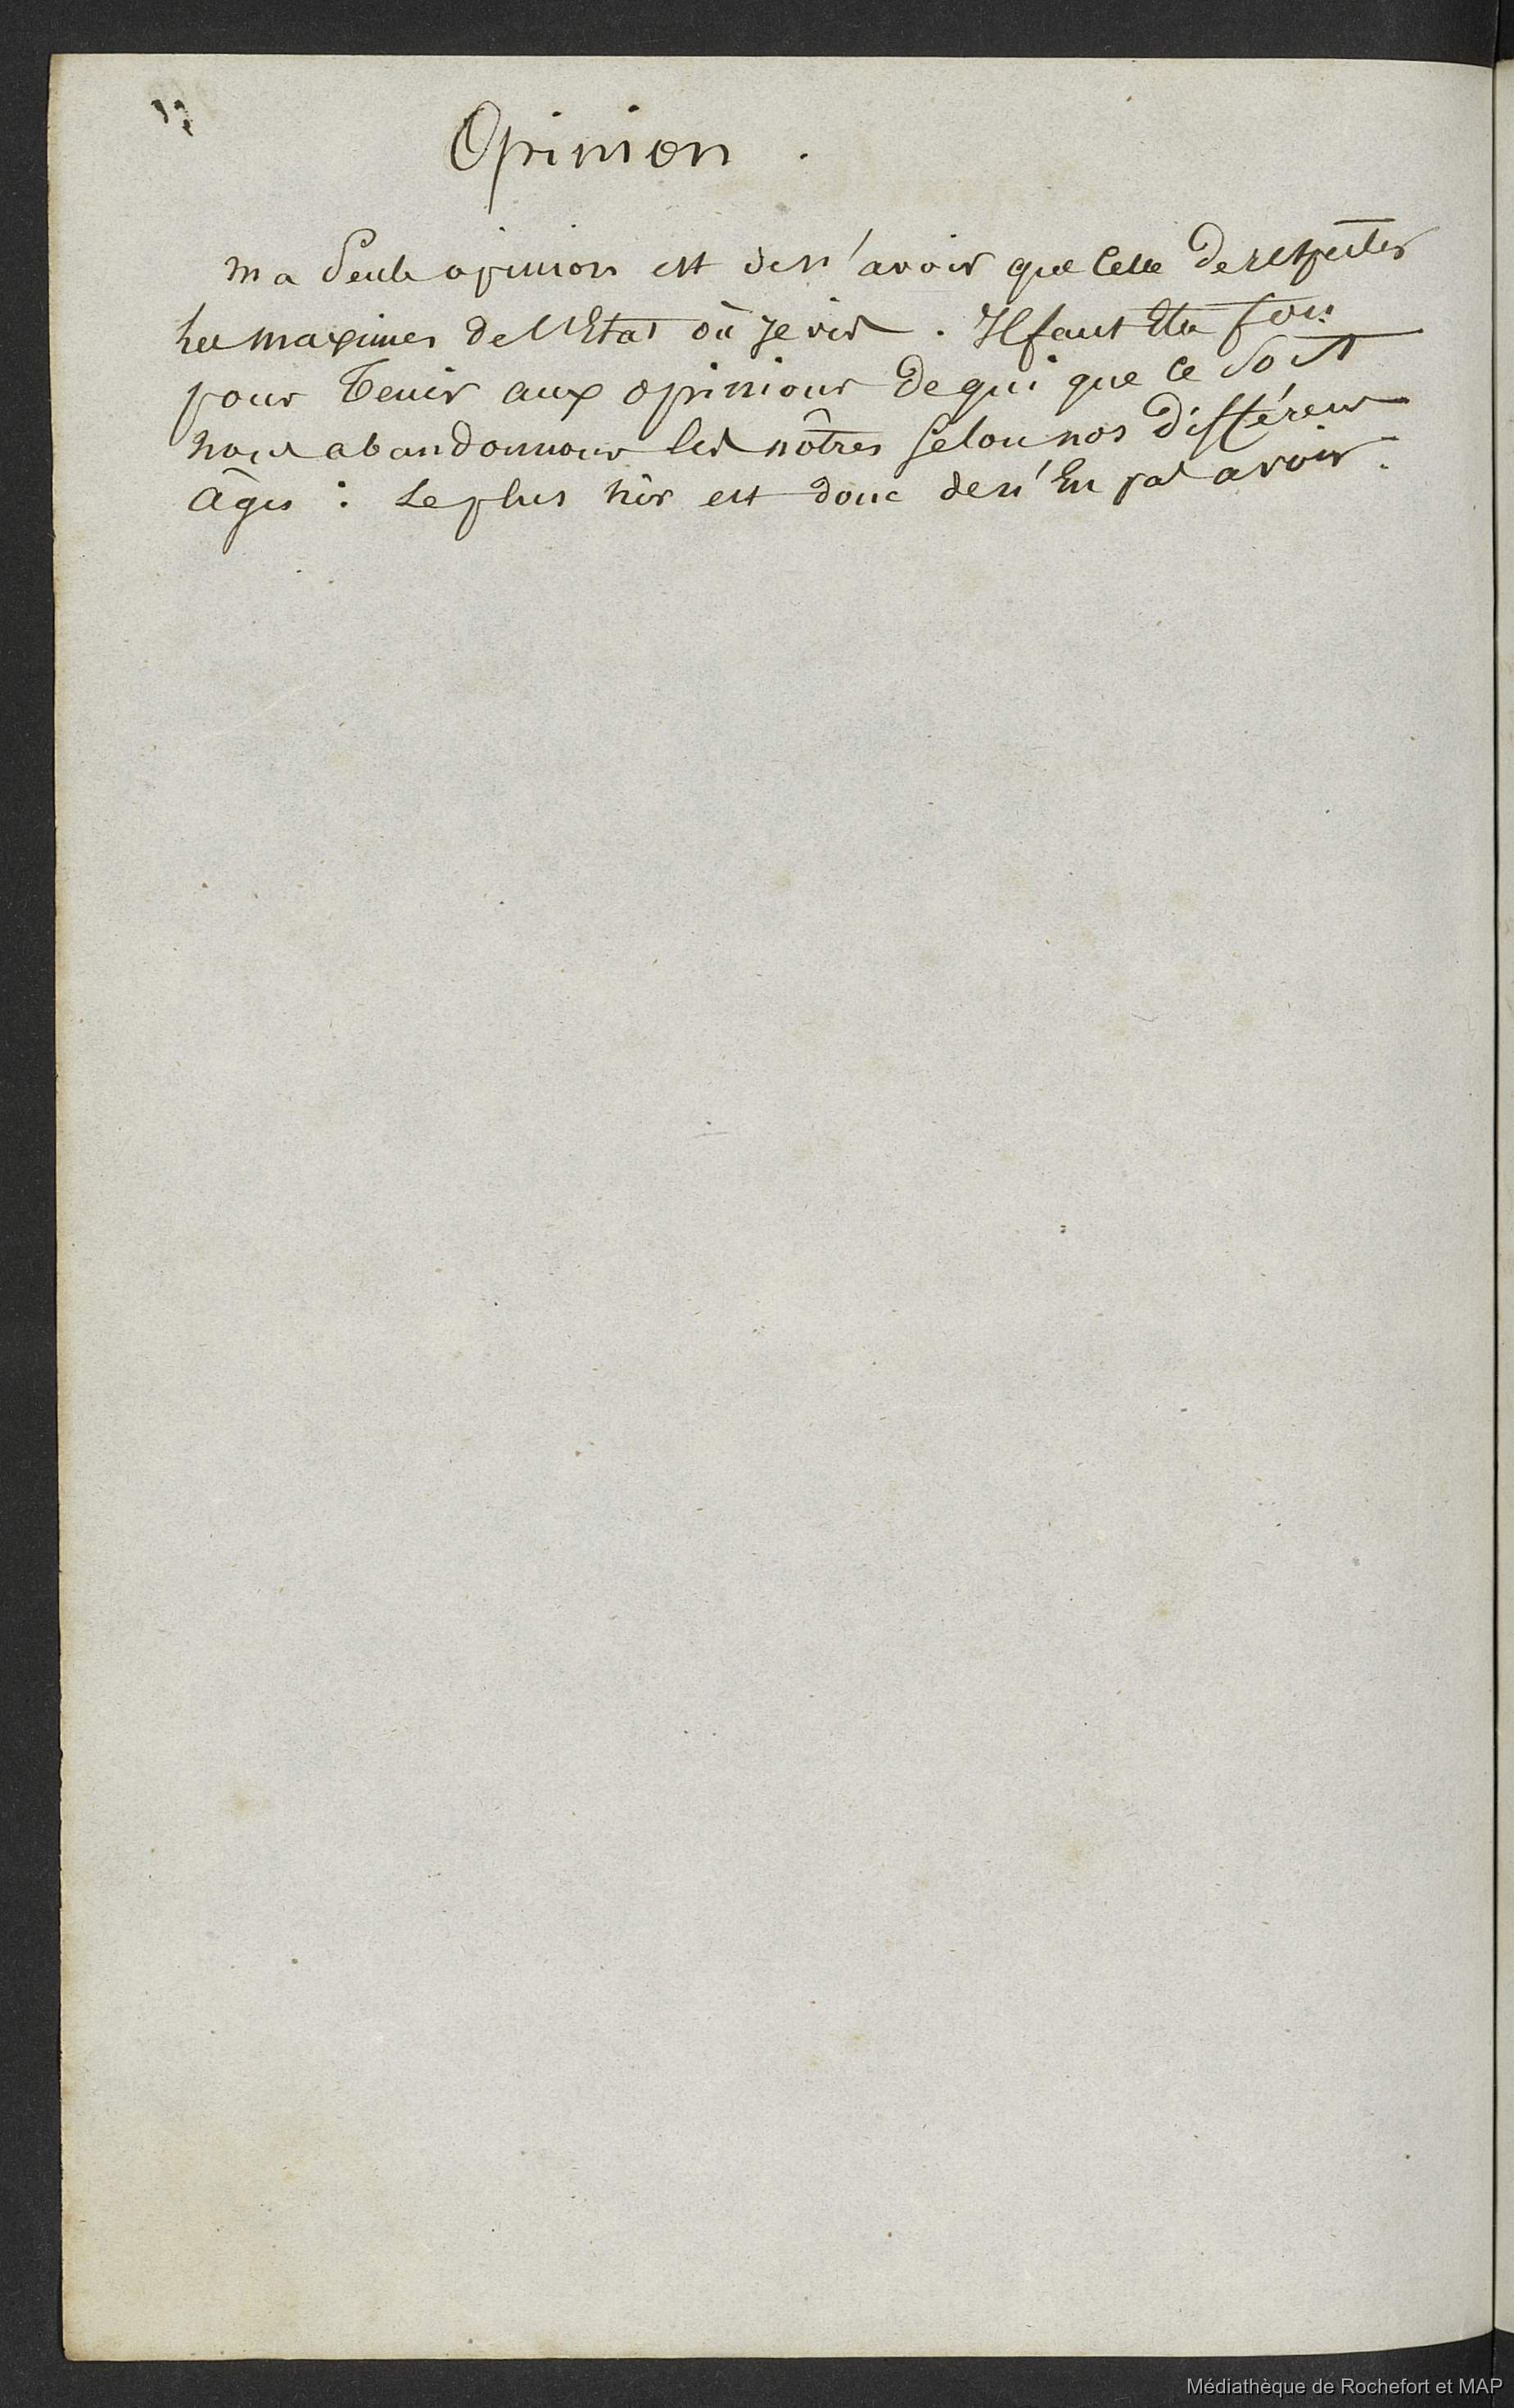 Opinion.
ma seule opinion est de n'avoir que celle de respecter
les maximes de l'Etat où je vis. Il faut être fou
pour tenir aux opinions de qui que ce soit
nous abandonnons les nôtres selon nos différens
âges : le plus sûr est donc de n'en pas avoir.
Médiathèque de Rochefort et MAP